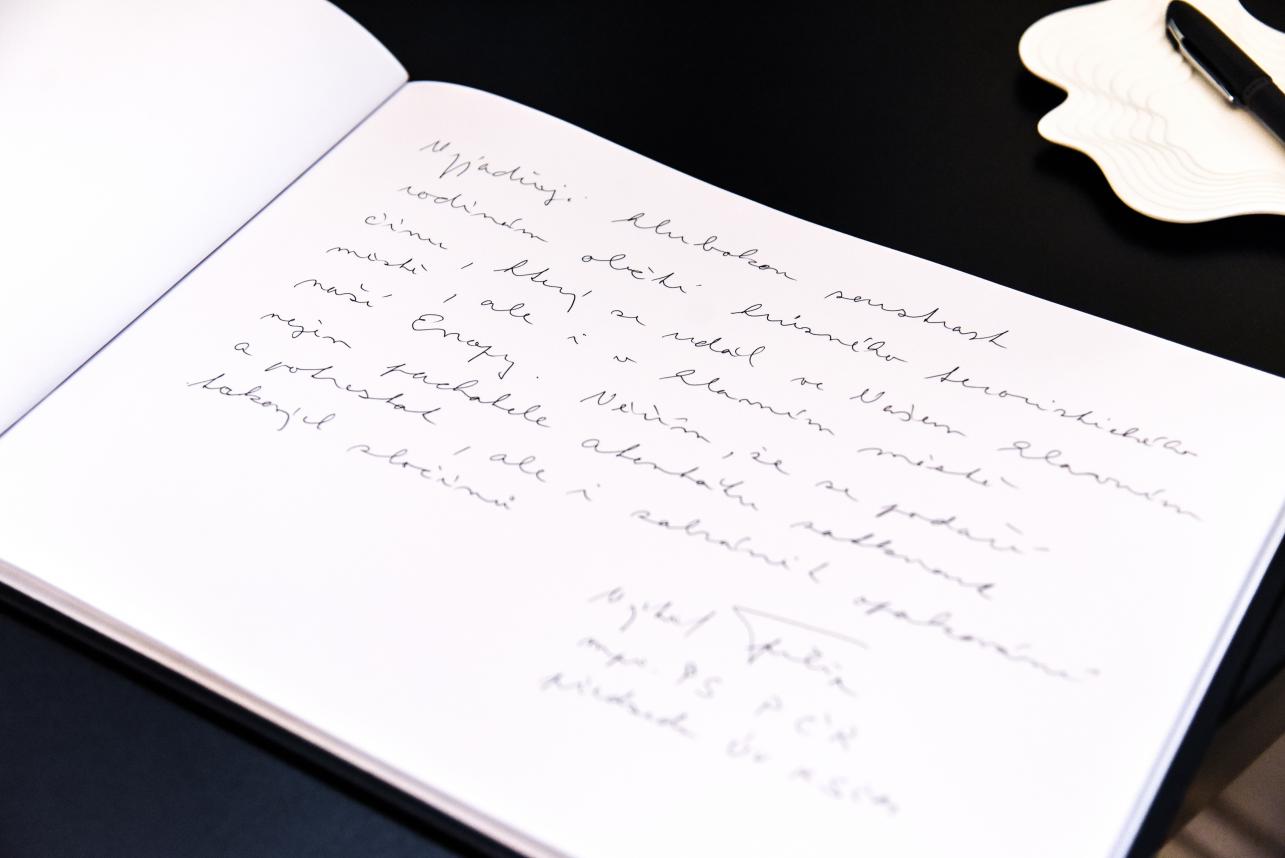 Vyjadřuji hlubokou soustrast
rodinám obětí hrůzného teroristického
činu, který se udál ve Vašem hlavním
městě, ale i v hlavním městě
naší Evropy. Věřím, že se podaří
nejen pachatele atentátu zadknout
a potrestat, ale i zabránit opakování
takových zločinů
Vojtěch Filip
mpř. PS P ČR
předseda ÚV KSČM